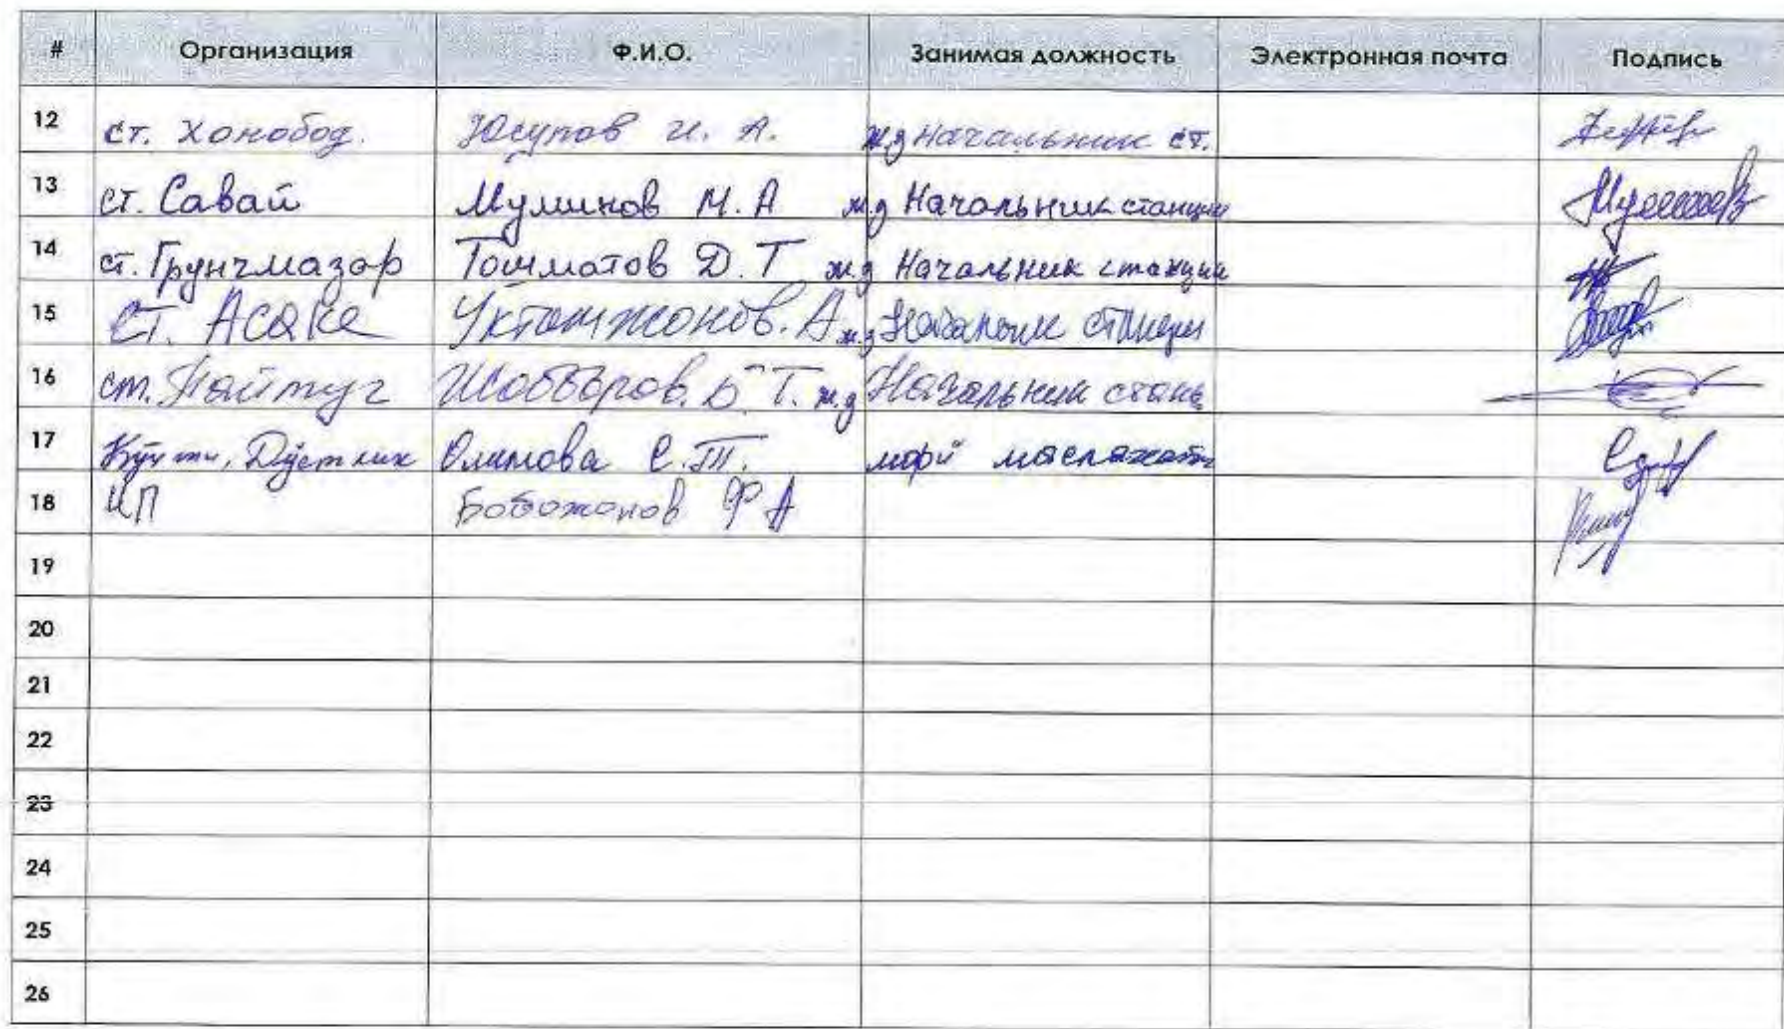 # Организация Ф.И.О. Занимая должность Электронная почта Подпись
12 ст. Хонобод. Юсупов И. А. жд Начальник ст.
13 ст. Савай Муминов М. А жд Начальник станции
14 ст. Грунчмазор Тошматов Д. Т жд Начальник станции
15 ст. Асаке Уктамжонов. А жд станции
16 ст. Пойтуг Жобборов. Б. Т. жд Начальник станц
17 Дўстлик Олимова С. Т.
18 ЧП Бобожонов Ф А
19
20
21
22
23
24
25
26